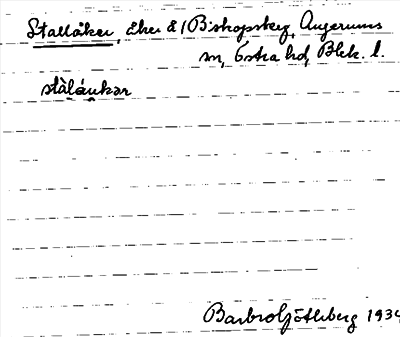 Stallåker, åker å 1 Biskopsberg, Augerums
sn, Östra hd, Blek. l.
stàláukar
Barbro Götleberg 1934